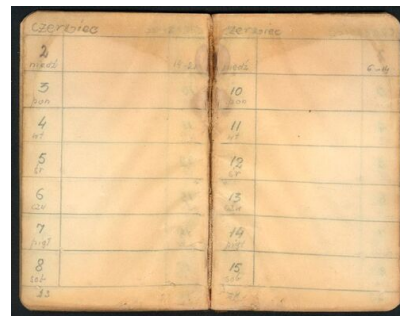 czerwiec
2
niedz
3
pon
4
wt
5
śr
6
czw
7
piąt
8
sob
23
czerwiec
niedz
10
pon
11
wt
12
śr
13
czw
14
piąt
15
sob